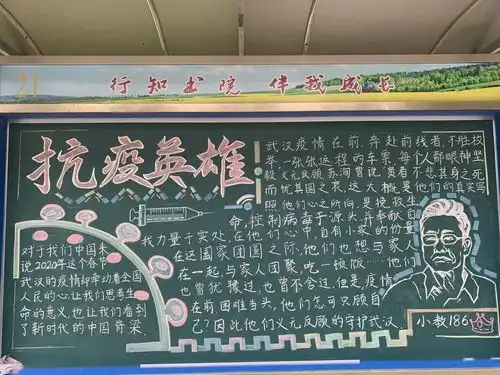 行知书院 伴我成长
抗疫英雄
武汉疫情在前,奔赴前线者,不胜枚
举,一张张返程的车票,每个人都眼神坚
毅义无反顾。苏洵曾说"贤者不悲其身之死,
而忧其国之衰。这大概是他们的真实写
照,他们心之所向,是挽救生
命,控制病毒于源头,并奉献自
我力量于实处。在他们心中,自有小家的份量
在这国家团圆之际,他们也想与家人
在一起,与家人团聚,吃一顿饭……他们
也曾犹豫过,也曾不舍过,但是疫情
在前,困难当头,他们怎可只顾自
己?因此他们义无反顾的守护武汉.
对于我们中国来
说,2020年这个春节
武汉的疫情却牵动着全国
人民的心,让我们思考生
命的意义,也让我们看到
了新时代的中国脊梁.
小教186